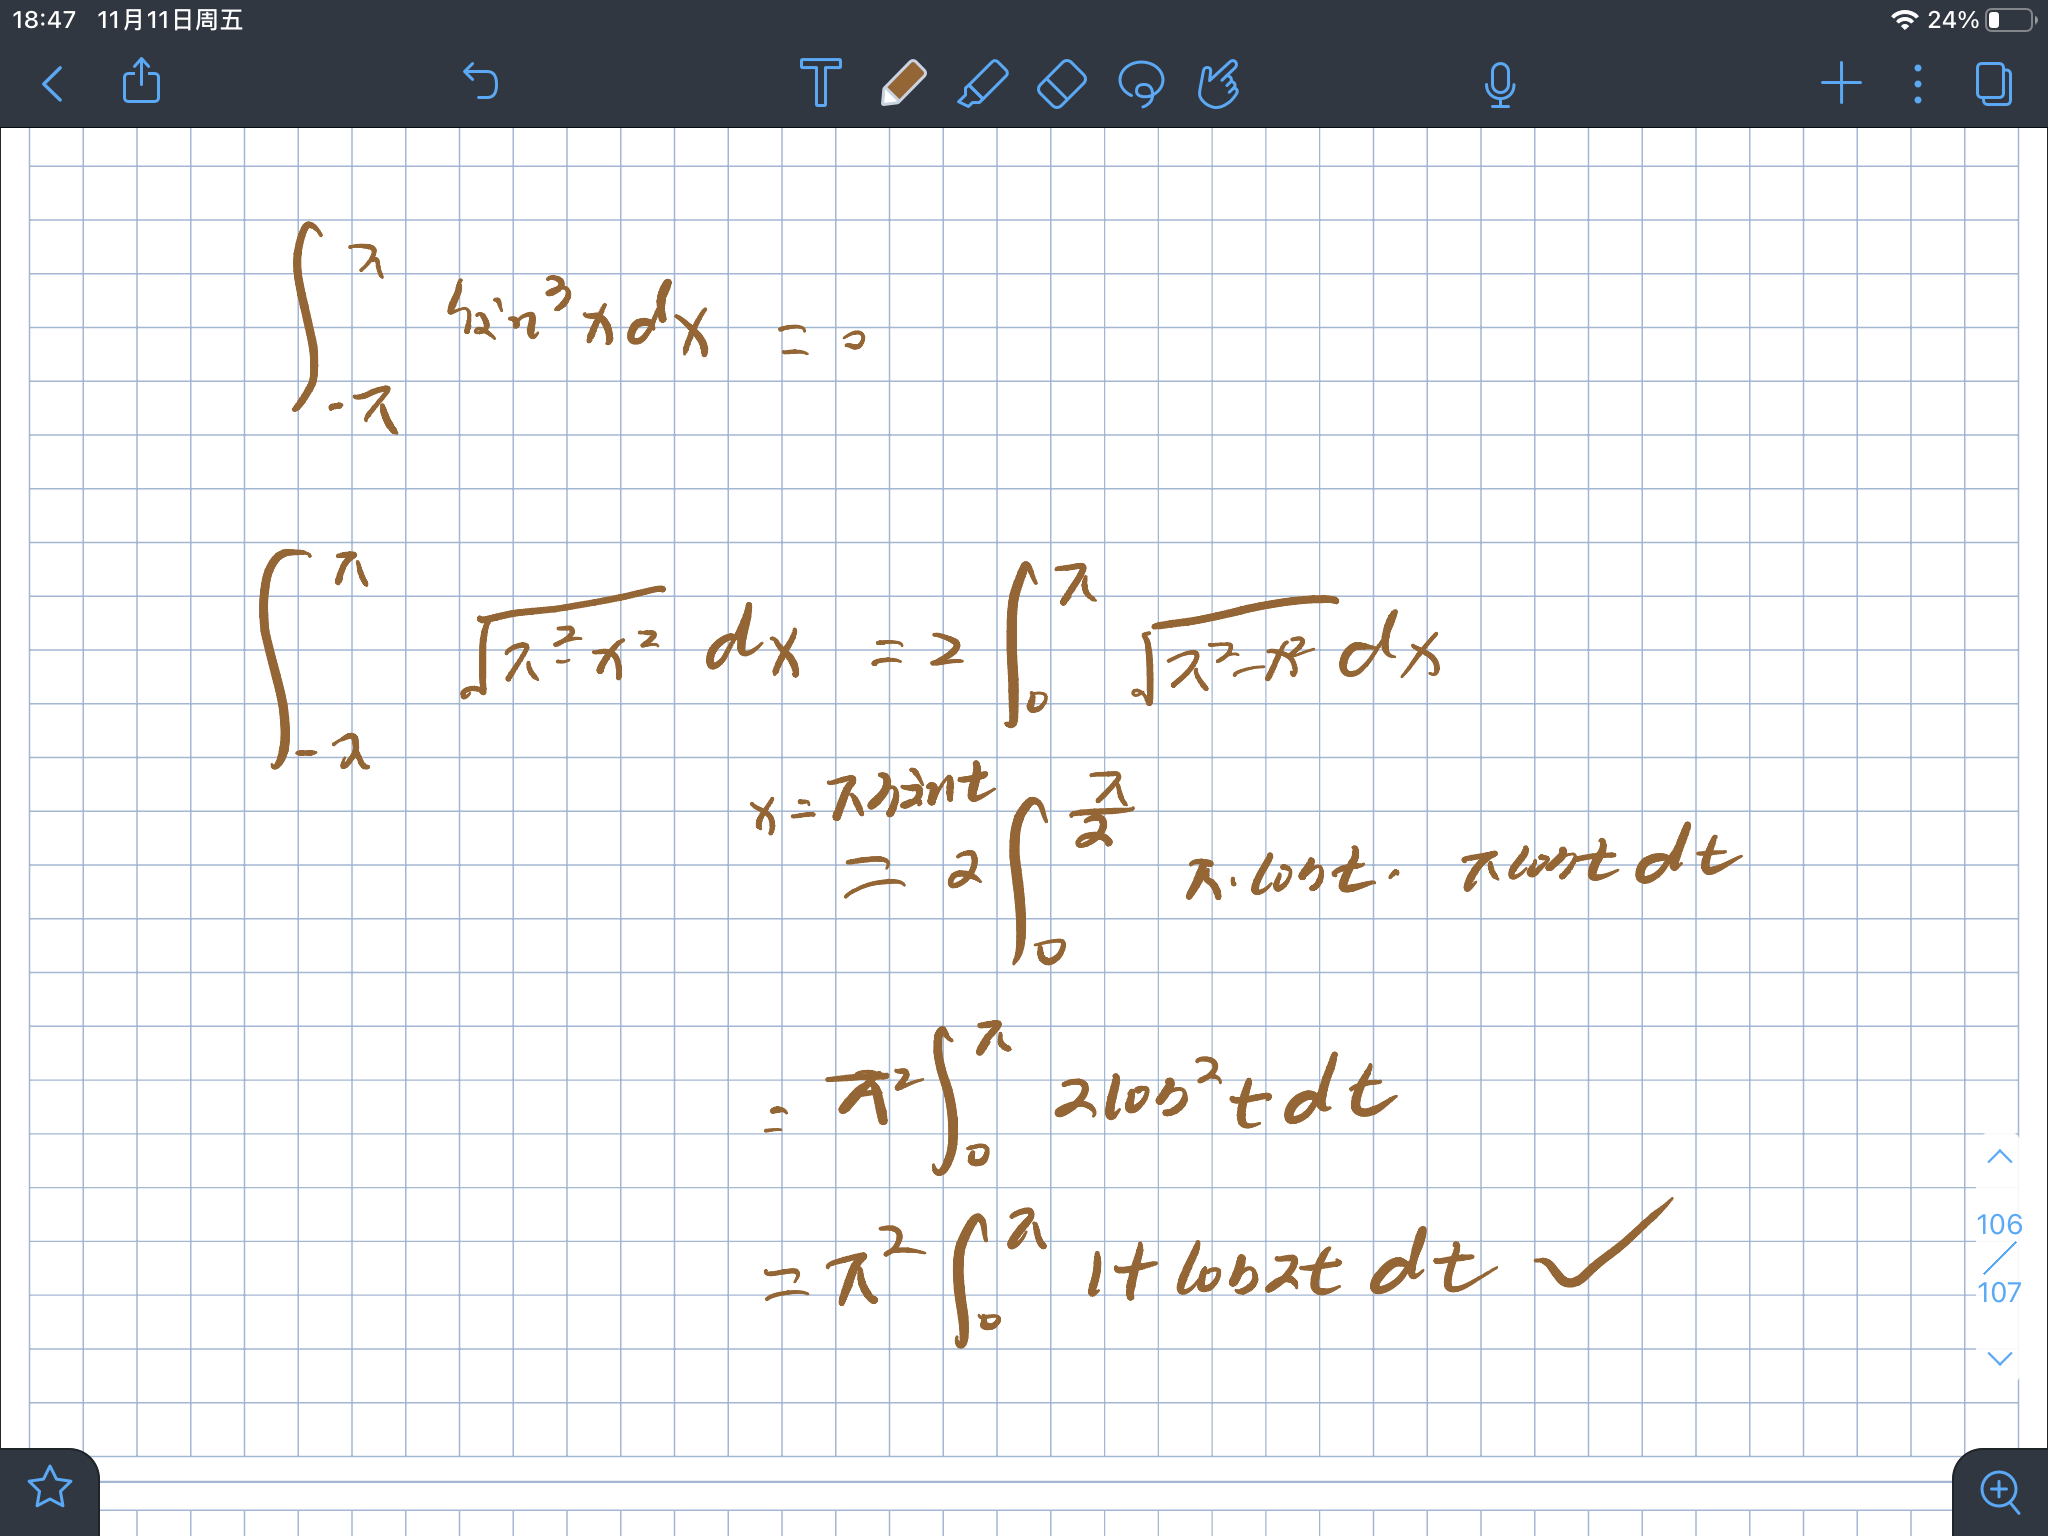 18:47 11月11日周五 24%
T
∫_{-π}^{π} sin³x dx = 0
∫_{-π}^{π} √(π²-x²) dx = 2 ∫_{0}^{π} √(π²-x²) dx
x = π sint
= 2 ∫_{0}^{π/2} π·cost· πcost dt
= π² ∫_{0}^{π} 2cos²t dt
= π² ∫_{0}^{π} 1+cos2t dt ✓
106
107